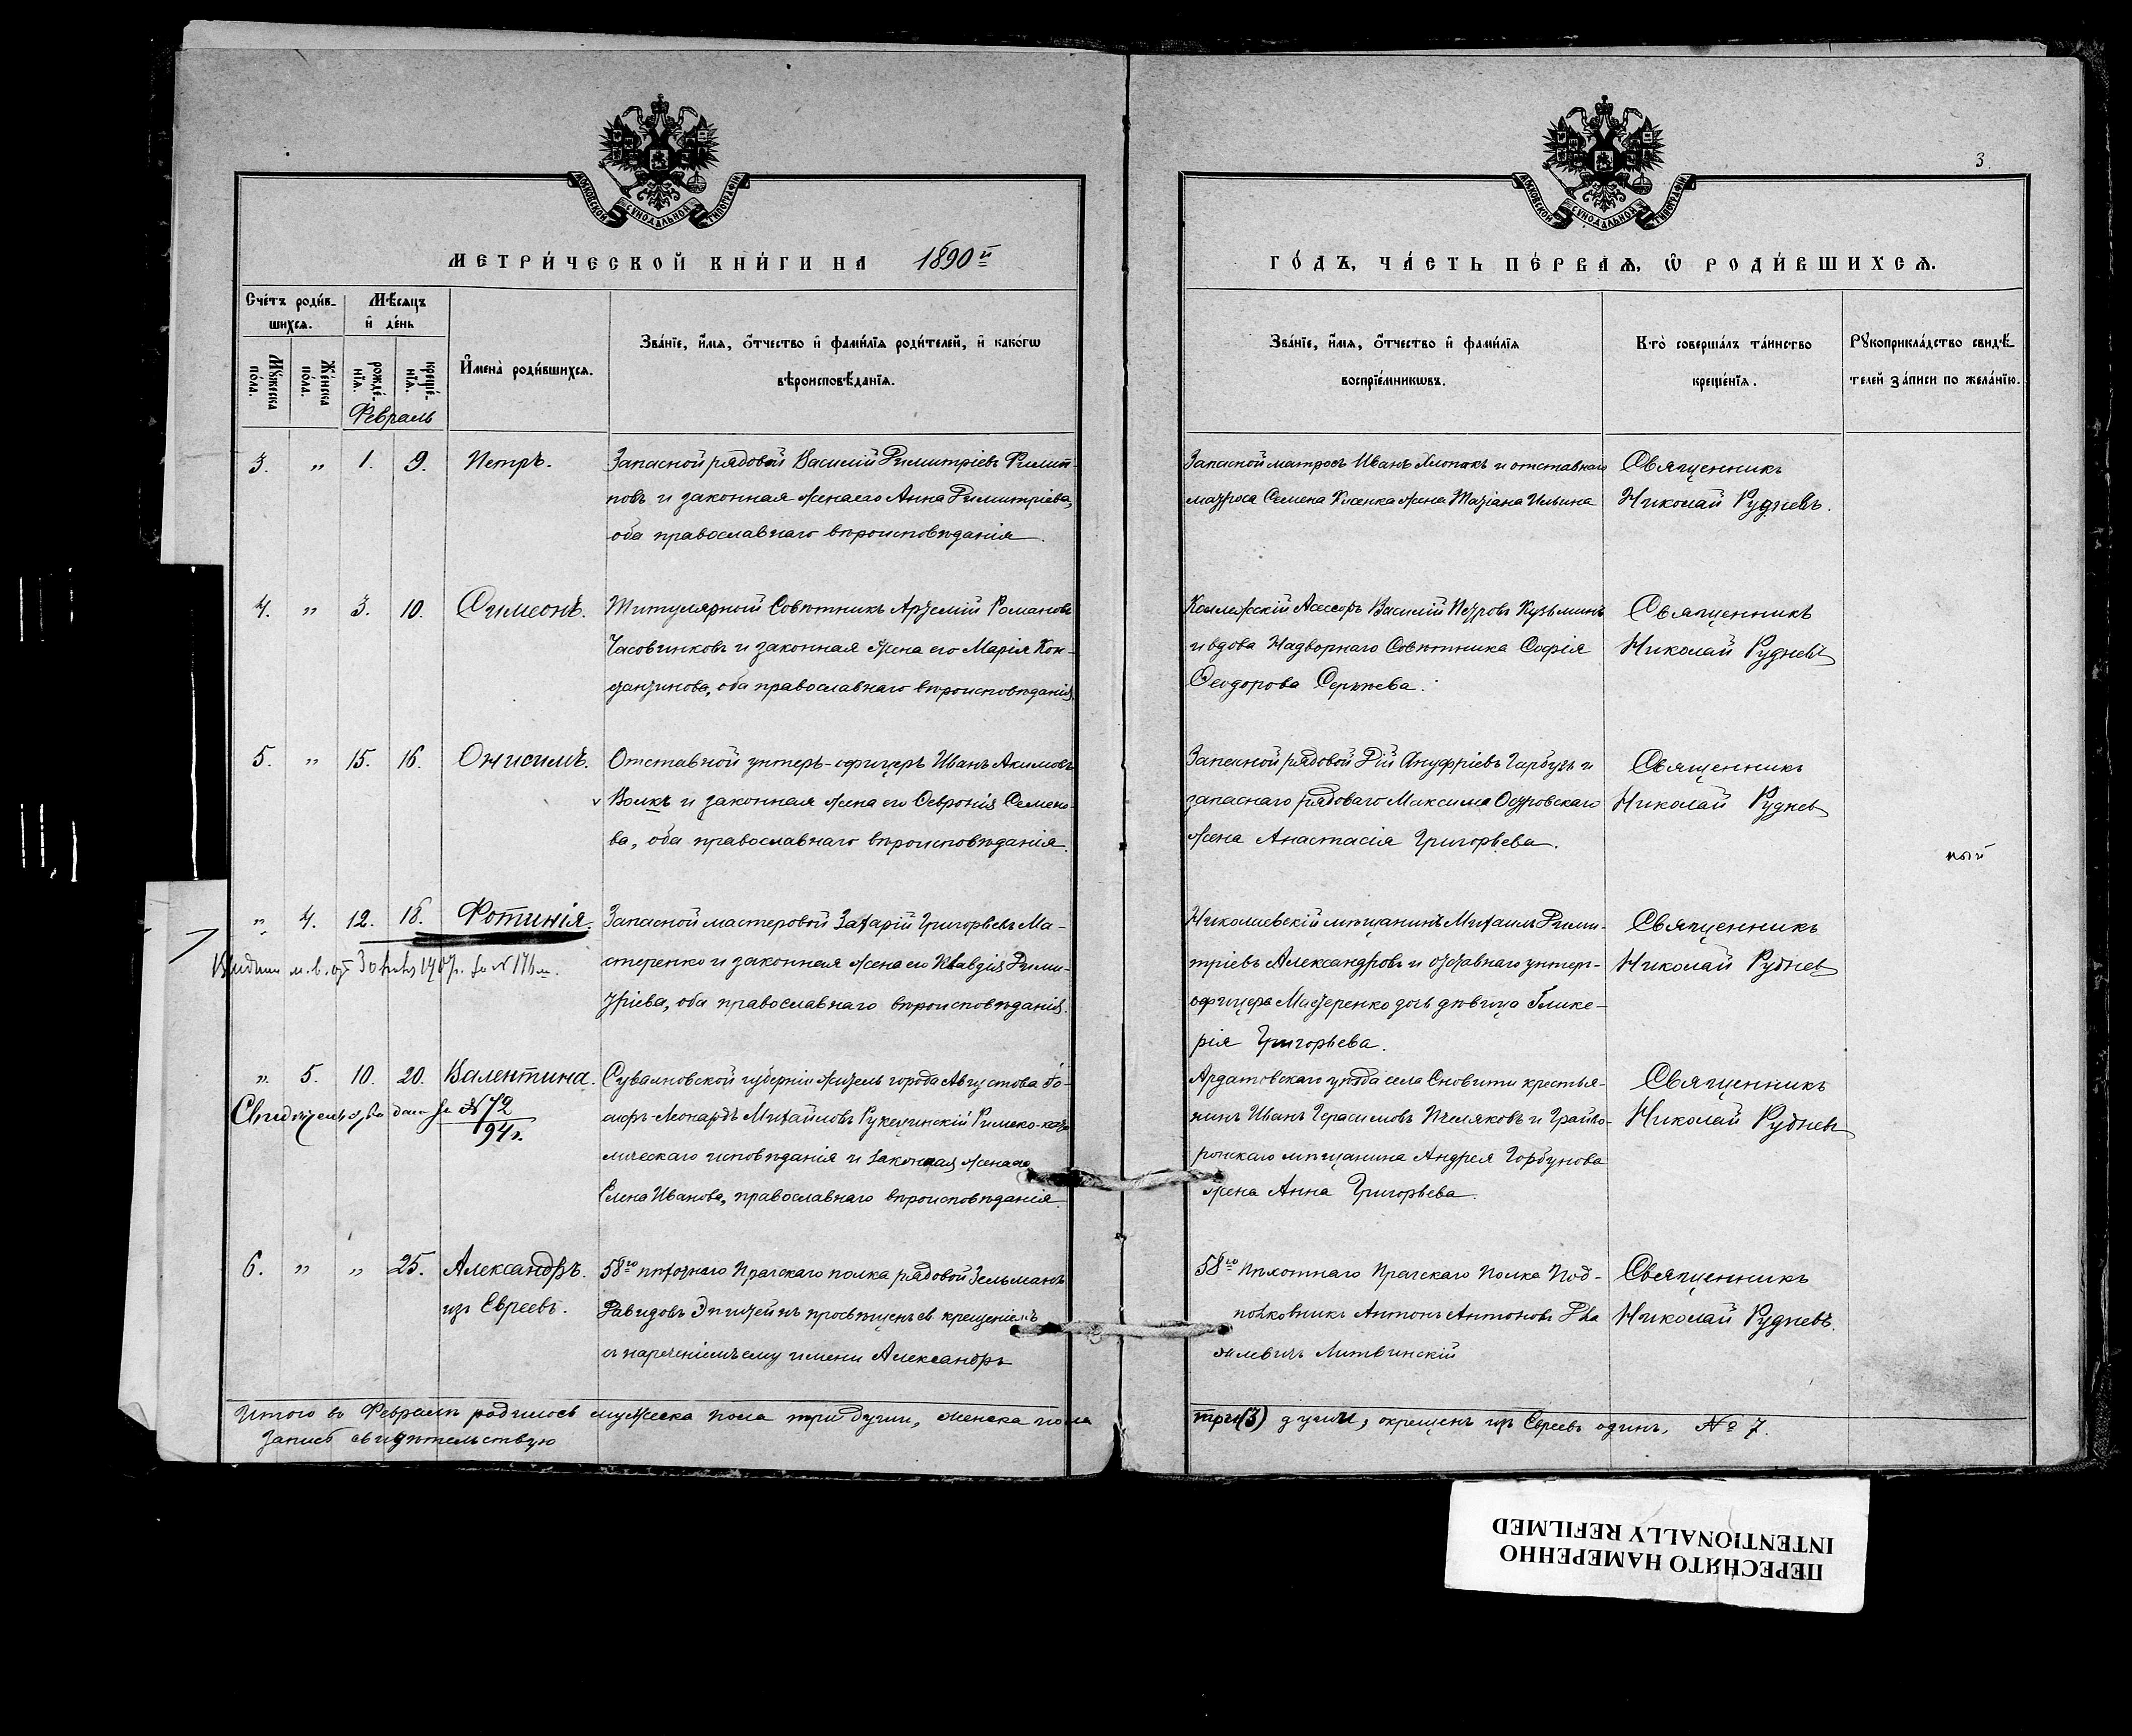 3.
МОСКОВСКОЙ СѴНОДАЛЬНОЙ ТИПОГРАФІИ
МОСКОВСКОЙ СѴНОДАЛЬНОЙ ТИПОГРАФІИ
МЕТРИ́ЧЕСКОЙ КНИ́ГИ НА 1890й
ГО́ДЪ, ЧА́СТЬ ПЕ́РВАѦ, Ѡ РОДИ́ВШИХСѦ.
Сче́тъ роди́в-
шихсѧ.
Мѣ́сѧцъ
и де́нь
Мꙋ́жеска по́ла.
Же́нска по́ла.
рожде́-нїѧ.
креще́-нїѧ.
Февраль
И҆мена̀ роди́вшихсѧ.
Зва́нїе, и҆́мѧ, ѻ҆́тчество и҆ фами́лїѧ роди́телей, и҆ како́гѡ
вѣроисповѣ́данїѧ.
Зва́нїе, и҆́мѧ, ѻ҆́тчество и҆ фами́лїѧ
воспрїе́мникѡвъ.
Кто̀ соверша́лъ та́инство
креще́нїѧ.
Рꙋкоприкла́дство свидѣ́-
телей за́писи по жела́нїю.
3. " 1. 9. Петръ.
Запасной рядовой Василій Димитріевъ Филип-
повъ и законная жена его Анна Димитріева,
оба православнаго вѣроисповѣданія.
Запасной матросъ Иванъ Хлопокъ и отставнаго
матроса Семена жена Татіана Ильина
Священникъ
Николай Рудневъ.
4. " 3. 10. Симеонъ.
Титулярной Совѣтникъ Артемій Романовъ
Часовниковъ и законная жена его Марія Кон-
стантинова, оба православнаго вѣроисповѣданія.
Коллежскій Асессоръ Василій Петровъ Кузьминъ
и вдова Надворнаго Совѣтника Софія
Ѳеодорова Сергѣева.
Священникъ
Николай Рудневъ
5. " 15. 16. Онисимъ.
Отставной унтеръ-офицеръ Иванъ Акимовъ
Волкъ и законная жена его Ѳевронія Семено-
ва, оба православнаго вѣроисповѣданія.
Запасной рядовой Ануфріевъ Гарбузъ и
запаснаго рядоваго Максима Островскаго
жена Анастасія Григорьева.
Священникъ
Николай Рудневъ
" 4. 12. 18. Фотинія.
м. в. от 30 1907г. за № 176
Запасной мастеровой Захарій Григорьевъ Ма-
стеренко и законная жена его Клавдія Дими-
тріева, оба православнаго вѣроисповѣданія.
Николаевскій мѣщанинъ Михаилъ Дими-
тріевъ Александровъ и отставнаго унтеръ-
офицера Мастеренко дочь дѣвица Глике-
рія Григорьева.
Священникъ
Николай Рудневъ
" 5. 10. 20. Валентина.
Свидѣтельство дано за № 72
94г.
Сувалковской губерніи житель города Августова Іо-
сифъ-Леонардъ Михайловъ Римско-като-
лическаго исповѣданія и законная жена его
Елена Иванова, православнаго вѣроисповѣданія.
Ардатовскаго уѣзда села крестья-
нинъ Иванъ Герасимовъ Пчеляковъ и Грайво-
ронскаго мѣщанина Андрея Горбунова
жена Анна Григорьева.
Священникъ
Николай Рудневъ
6. " " 25. Александръ.
изъ Евреевъ.
58го пѣхотнаго Прагскаго полка рядовой Зельманъ
Давидовъ просвѣщенъ св. крещеніемъ
съ нареченіемъ ему имени Александръ
58го Пѣхотнаго Прагскаго Полка Под-
полковникъ Антонъ Антоновъ
Литвинскій
Священникъ
Николай Рудневъ.
Итого въ Февралѣ родилось мужеска пола три души, женска пола
три (3) души, окрещенъ изъ Евреевъ одинъ. № 7.
Запись свидѣтельствую
ПЕРЕСНЯТО НАМЕРЕННО
INTENTIONALLY REFILMED